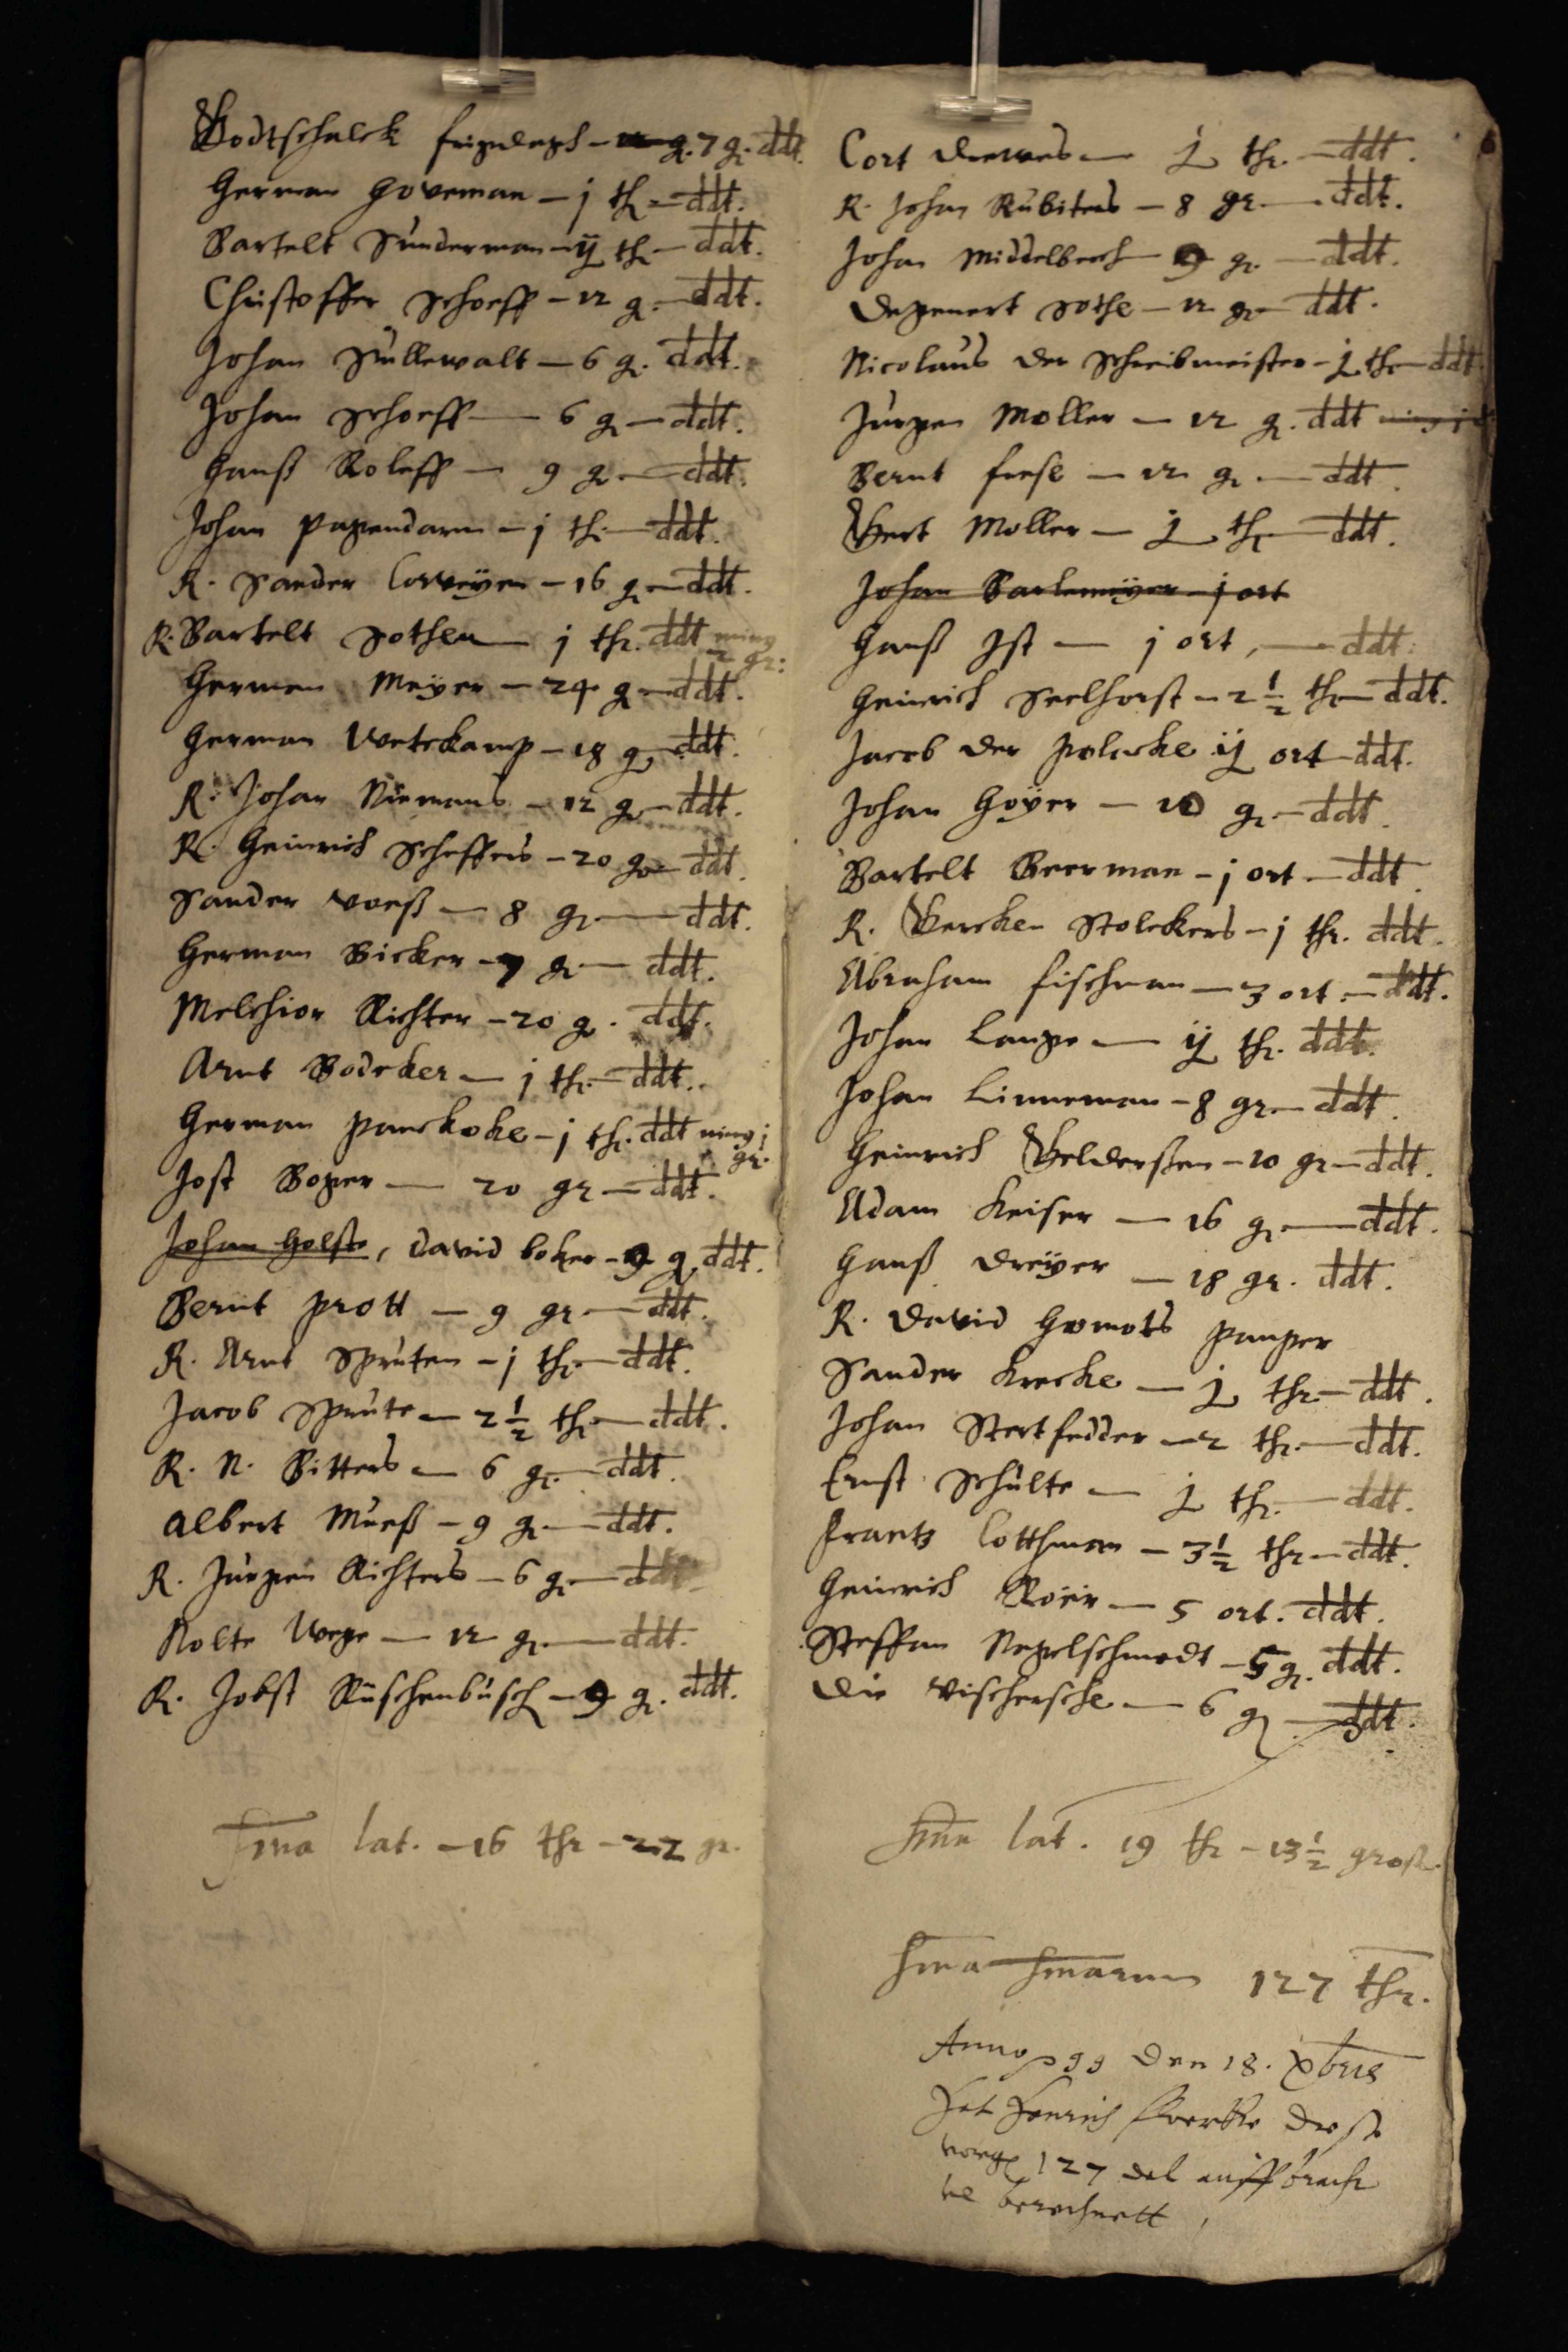 Godtschalck frigdagh - 7 g. ddt.
Herman Hoveman - j th - ddt.
Bartelt Sunderman - ij th - ddt.
Christoffer Schoeff - 12 g. - ddt.
Johan Sullewalt - 6 g. ddt.
Johan Schoeff - 6 g - ddt.
Hanß Roleff - 9 g - ddt.
Johan Papendarm - j th. - ddt.
R. Sander Corveyen - 16 g - ddt.
R. Bartelt Sothen - j thr. ddt ming
2 gr:
Herman Meÿer - 24 g - ddt.
Herman Wetekamp - 18 g - ddt.
R. Johan Niemans - 12 g - ddt.
R. Heinrich Scheffers - 20 g - ddt.
Sander voeß - 8 g - ddt.
Herman Bicker - 7 g - ddt.
Melchior Richter - 20 g. ddt.
Arnt Bodeker - j th - ddt.
Herman Panckoke - j th. ddt ming j
gr.
Jost Boger - 20 gr - ddt.
Johan Holste, David boker - 9 g. ddt.
Bernt Prott - 9 gr. - ddt.
R. Arnt Spruten - j th - ddt.
Jacob Sprute - 2 1/2 th - ddt.
R. N. Bitters - 6 g. - ddt.
Albert Mueß - 9 g. - ddt.
R. Jurgen Richters - 6 g. - ddt
Nolte Wege - 12 g. - ddt.
R. Jobst Ruschenbusch - 9 g. ddt.
Sma lat. - 16 thr - 22 gr.
Cort Drewes - j thr. - ddt.
R. Johan Rubiters - 8 gr. - ddt.
Johan Middelbeeh - 9 g. - ddt.
Degenert Sothe - 12 gr - ddt.
Nicolaus der Schreibmeister - j th - ddt
Jurgen Moller - 12 g. ddt
Bernt frese - 12 g. - ddt.
Gert Moller - j th - ddt.
Johan Barlemeyer - j ort
Hanß Ist - j ort, - ddt.
Heinrich Seelhorst - 2 1/2 th - ddt.
Jacob der Polacke ij ort - ddt.
Johan Hoÿer - 10 g. - ddt.
Bartelt Beerman - j ort - ddt.
R. Gercken Stolckers - j thr. ddt.
Abraham fischman - 3 ort. - ddt.
Johan Lange - ij th. ddt.
Johan Linneman - 8 gr. - ddt.
Heinrich Gelderßen - 10 gr - ddt.
Adam Keiser - 16 g. - ddt.
Hanß Dreÿer - 18 gr. ddt.
R. David Homots pauper
Sander Krecke - j thr - ddt.
Johan Stertfedder - 2 th. - ddt.
Ernst Schulte - j th. - ddt.
Frantz Cotthman - 3 1/2 thr - ddt.
Heinrich Roeir - 5 ort. ddt.
Steffan Negelschmedt - 5 g. ddt.
Die Vischersche - 6 g. - ddt.
Sma lat. 19 th - 13 1/2 groß
Sma Smarum 127 thr.
Anno 99 den 18. Xbris
Hat Henrich disse
vorg 127 dal auffbracht
berechnett